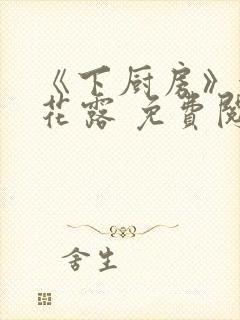 《下厨房》
花露 免費閱
舍生